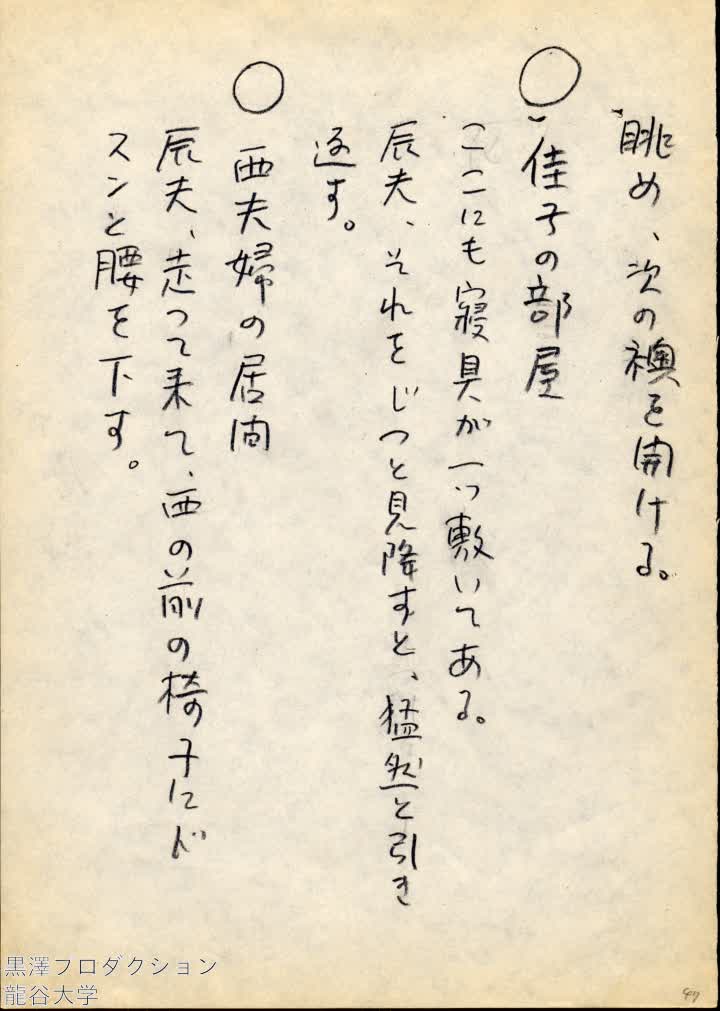 眺め、次の襖を開ける。
○佳子の部屋
ここにも寝具が一つ敷いてある。
辰夫、それをじっと見降すと、猛然と引き
返す。
○西夫婦の居間
辰夫、走って来て、西の前の椅子にド
スンと腰を下す。
黒澤プロダクション
龍谷大学
47